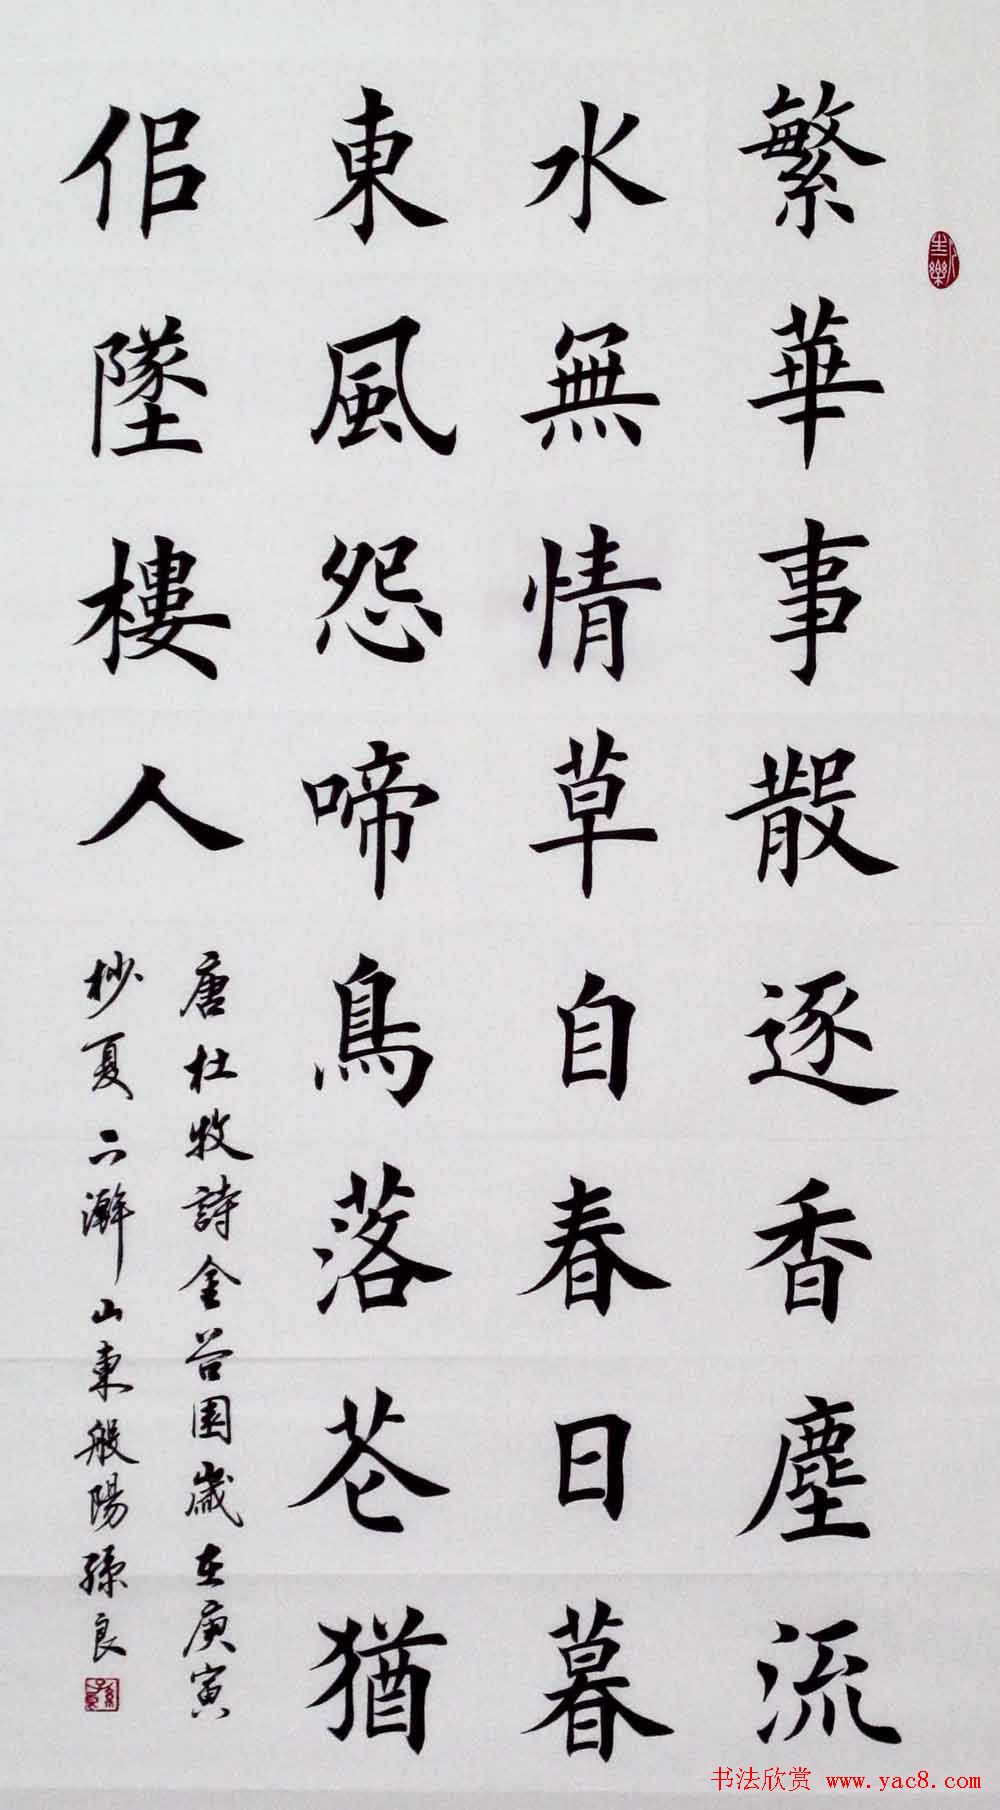 繁華事散逐香塵流
水無情草自春日暮
東風怨啼鳥落花猶
佀墜樓人
唐杜牧詩金谷園歲在庚寅
杪夏下澣山東般陽孫良
书法欣赏 www.yac8.com